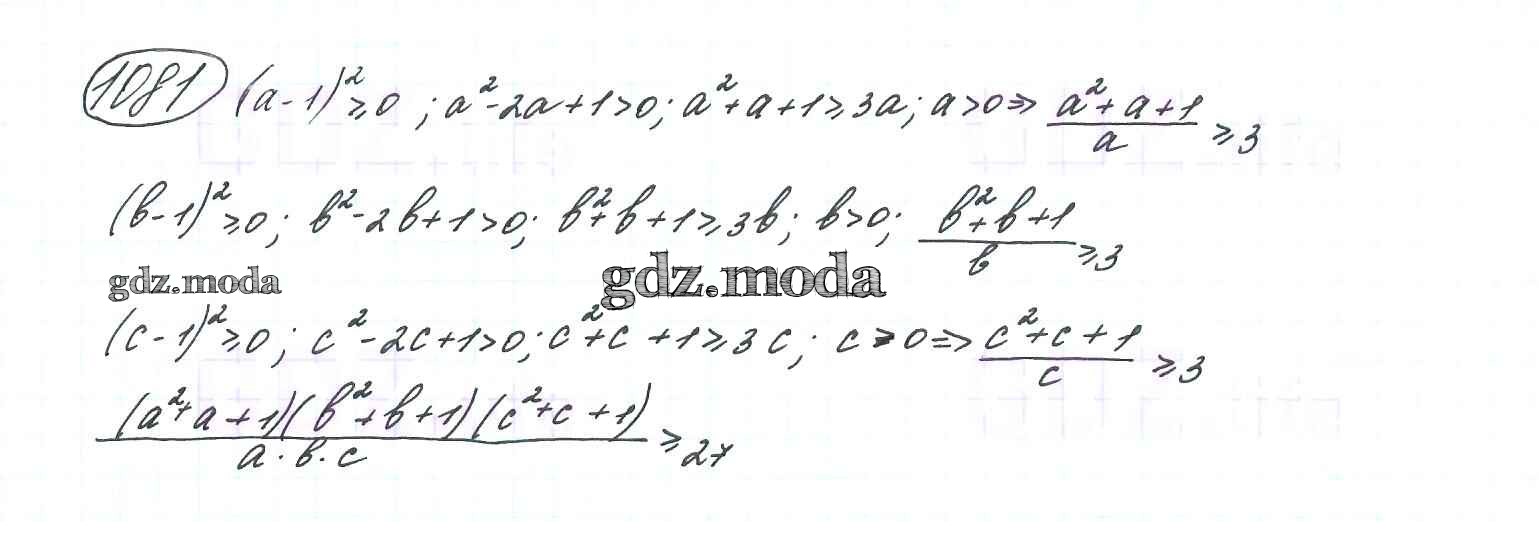 1081 (a-1)² ≥ 0 ; a² - 2a + 1 > 0; a² + a + 1 ≥ 3a; a > 0 ⇒ (a² + a + 1)/a ≥ 3
(b-1)² ≥ 0; b² - 2b + 1 > 0; b² + b + 1 ≥ 3b; b > 0; (b² + b + 1)/b ≥ 3
gdz.moda gdz.moda
(c-1)² ≥ 0; c² - 2c + 1 > 0; c² + c + 1 ≥ 3c; c > 0 ⇒ (c² + c + 1)/c ≥ 3
(a² + a + 1)(b² + b + 1)(c² + c + 1)/(a · b · c) ≥ 27